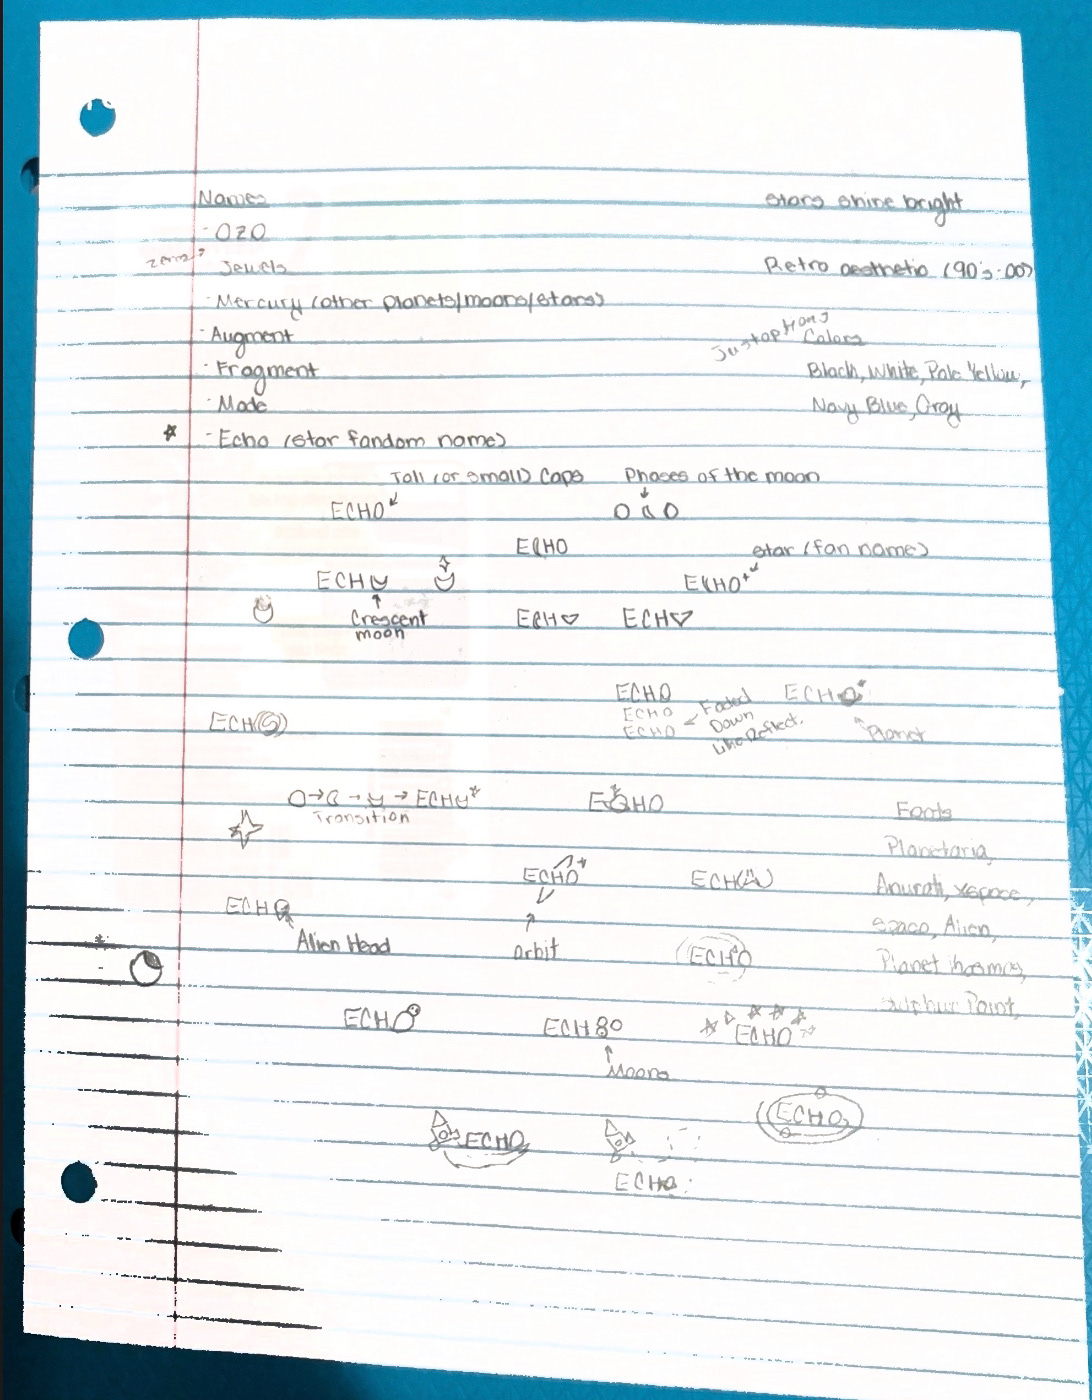 Names
stars shine bright
- OZO
Jewels
Retro aesthetic (90's-00)
- Mercury (other planets/moons/stars)
- Augment
Just options
Colors
- Fragment
Black, White, Pale Yellow,
- Mode
Navy Blue, Gray
- Echo (star fandom name)
Tall (or small) Caps
Phases of the moon
ECHO
ECHO
star (fan name)
ECH
ECHO
Crescent
moon
ECH
ECH
ECHO
ECHO
ECHO
ECHO
Faded
Down
Like Reflect.
ECH
Planet
ECH
Transition
ECHO
Fonts
Planetaria,
ECHO
ECH
Anurati, xspace,
ECHO
Space, Alien,
Alien Head
orbit
ECHO
Planet kosmos,
Sulphur Point,
ECHO
ECH8O
ECHO
Moons
ECHO
ECHO
ECHO